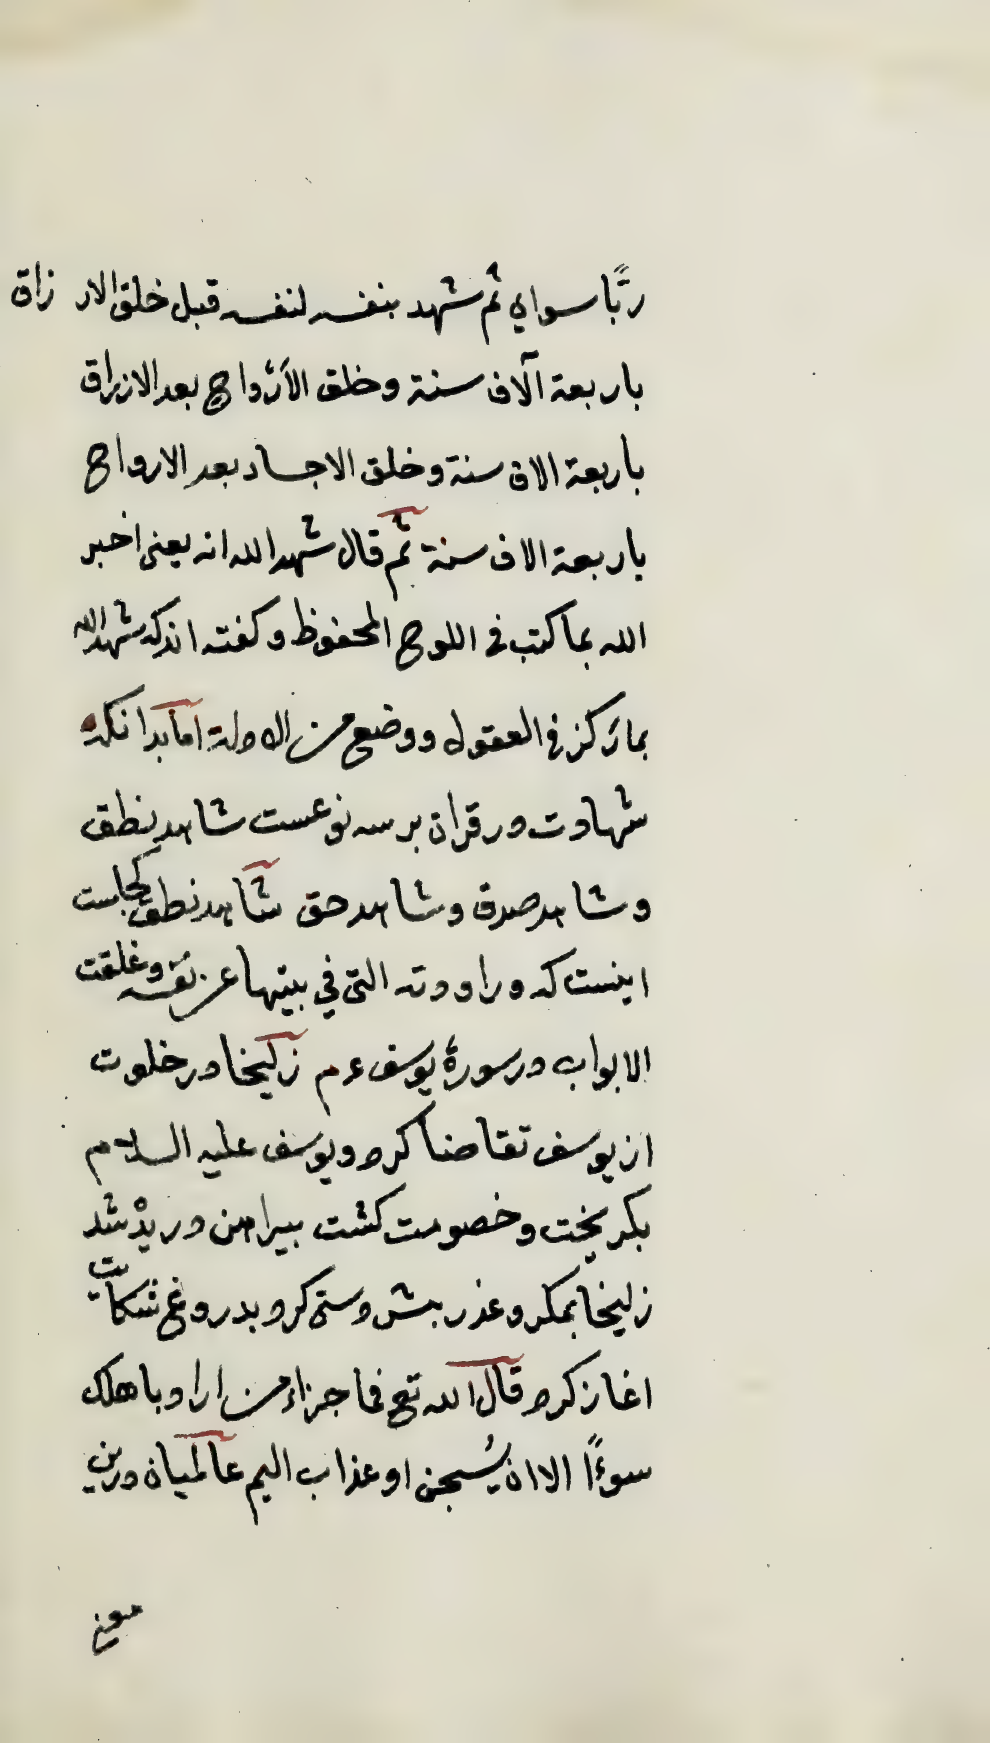 ربًّا سواي ثم شهد بنفسه لنفسه قبل خلق الارزاق
باربعة آلاف سنة وخلق الأرواح بعد الارزاق
باربعة الاف سنة وخلق الاجساد بعد الارواح
باربعة الاف سنة ثم قال شهد الله انه يعنى اخبر
الله بما كتب فى اللوح المحفوظ وكفته اندكه شهد الله
بما ركز فى العقول ووضع من الادلة اما بدانكه
شهادت در قران بر سه نوعست شاهد نطق
وشاهد صدق وشاهد حق شاهد نطق كجاست
اينست كه وراودته التى في بيتها عن نفسه وغلقت
الابواب در سورهٔ يوسف ءم زليخا در خلوت
از يوسف تقاضا كرد ويوسف عليه السلام
بكريخت وخصومت كشت پيراهن دريدْ شد
زليخا بمكر وعذر پيش دستى كرد وبدروغ شكايت
اغاز كرد قال الله تع فما جزاء من اراد باهلك
سوءًا الا ان يُسجن او عذاب اليم عالميان درين